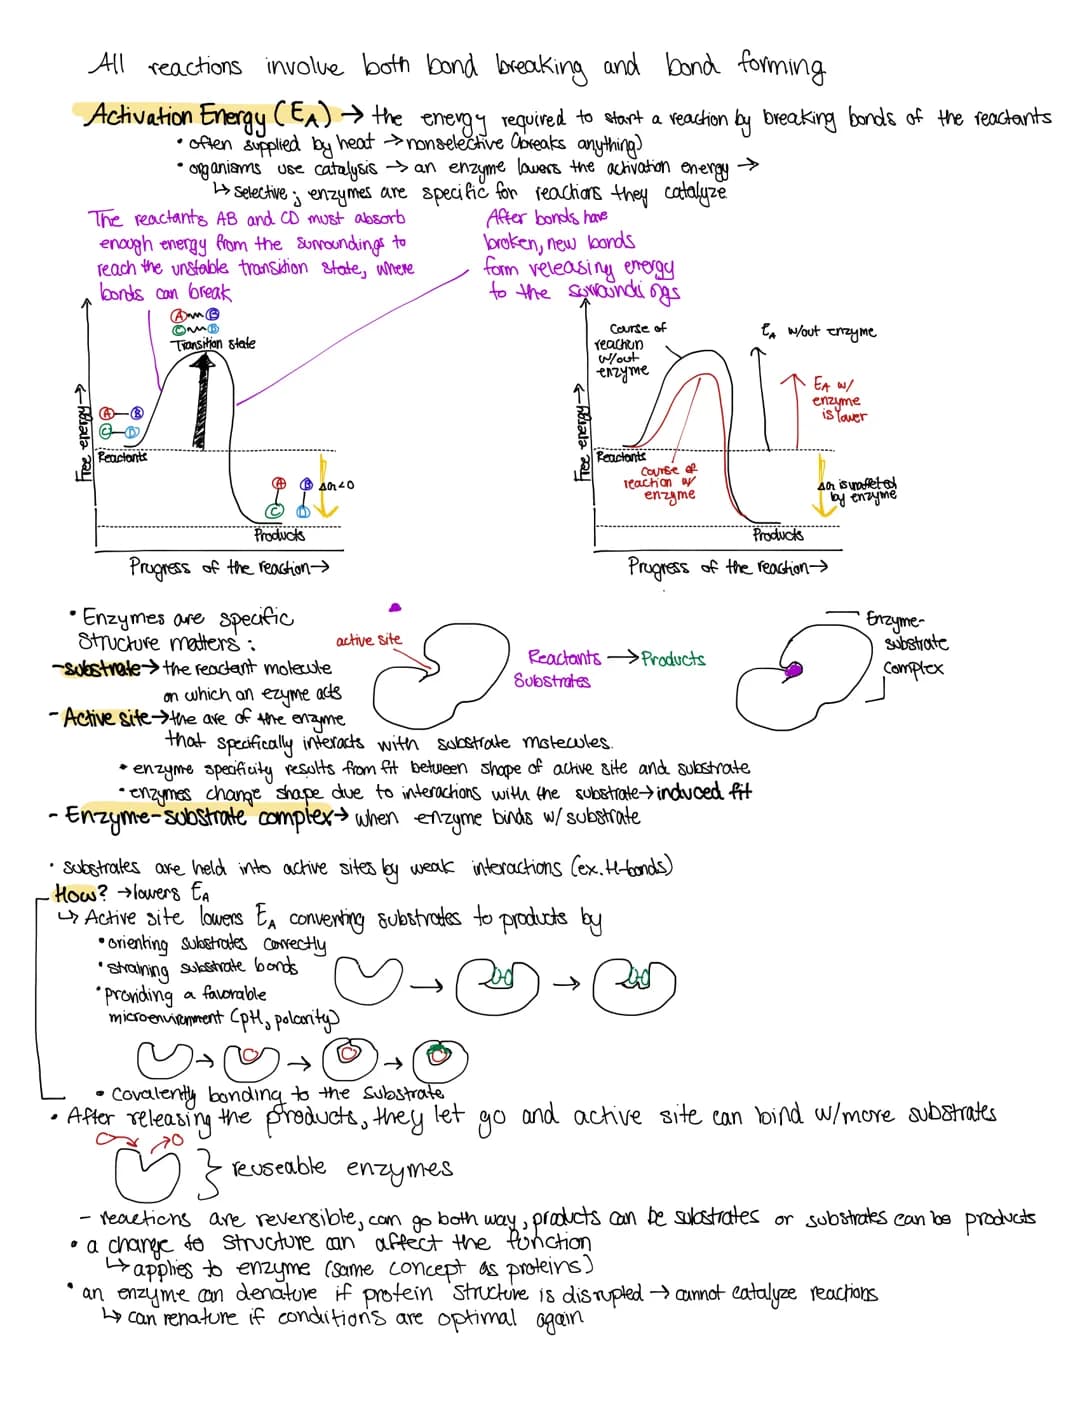 All reactions involve both bond breaking and bond forming
Activation Energy (EA) → the energy required to start a reaction by breaking bonds of the reactants
• often supplied by heat → nonselective (breaks anything)
• organisms use catalysis → an enzyme lowers the activation energy →
↳ selective; enzymes are specific for reactions they catalyze
The reactants AB and CD must absorb
enough energy from the surroundings to
reach the unstable transition state, where
bonds can break
After bonds have
broken, new bonds
form releasing energy
to the surroundings
A B
C D
Transition state
A B
C D
Free energy →
Reactants
A B ΔG<0
C D
Products
Progress of the reaction →
Course of
reaction
w/out
enzyme
EA w/out enzyme
EA w/
enzyme
is lower
Free energy →
Reactants
Course of
reaction w/
enzyme
ΔG is unaffected
by enzyme
Products
Progress of the reaction →
• Enzymes are specific
Structure matters:
- substrate → the reactant molecule
on which an ezyme acts
active site
Reactants → Products
Substrates
Enzyme-
substrate
complex
- Active site → the are of the enzyme
that specifically interacts with substrate molecules.
• enzyme specificity results from fit between shape of active site and substrate
• enzymes change shape due to interactions with the substrate → induced fit
- Enzyme-substrate complex → when enzyme binds w/ substrate
• substrates are held into active sites by weak interactions (ex. H-bonds)
How? → lowers EA
↳ Active site lowers EA converting substrates to products by
• orienting substrates correctly
• straining substrate bonds
• providing a favorable
microenvironment (pH, polarity)
• Covalently bonding to the substrate
• After releasing the products, they let go and active site can bind w/more substrates
} reuseable enzymes
- reactions are reversible, can go both way, products can be substrates or substrates can be products
• a change to structure can affect the function
↳ applies to enzyme (same concept as proteins)
• an enzyme can denature if protein structure is disrupted → cannot catalyze reactions
↳ can renature if conditions are optimal again